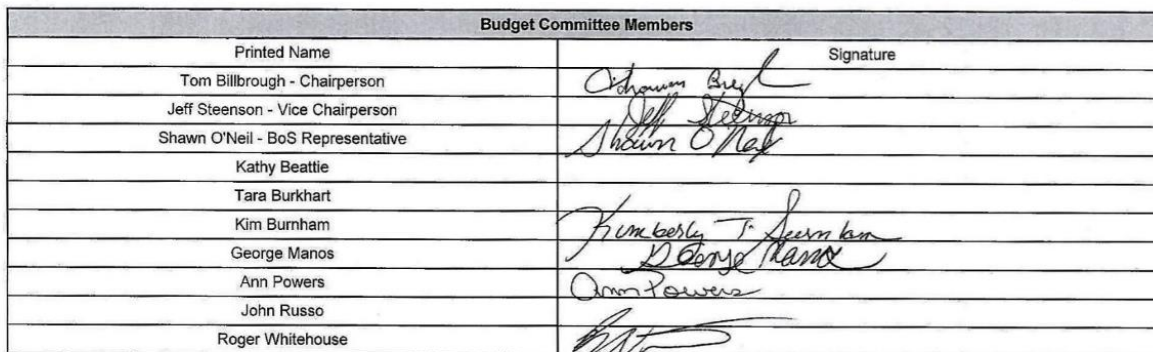 Budget Committee Members
Printed Name Signature
Tom Billbrough - Chairperson
Jeff Steenson - Vice Chairperson Jeff Steenson
Shawn O'Neil - BoS Representative Shawn O'Neil
Kathy Beattie
Tara Burkhart
Kim Burnham Kimberly T. Burnham
George Manos George Manos
Ann Powers Ann Powers
John Russo
Roger Whitehouse